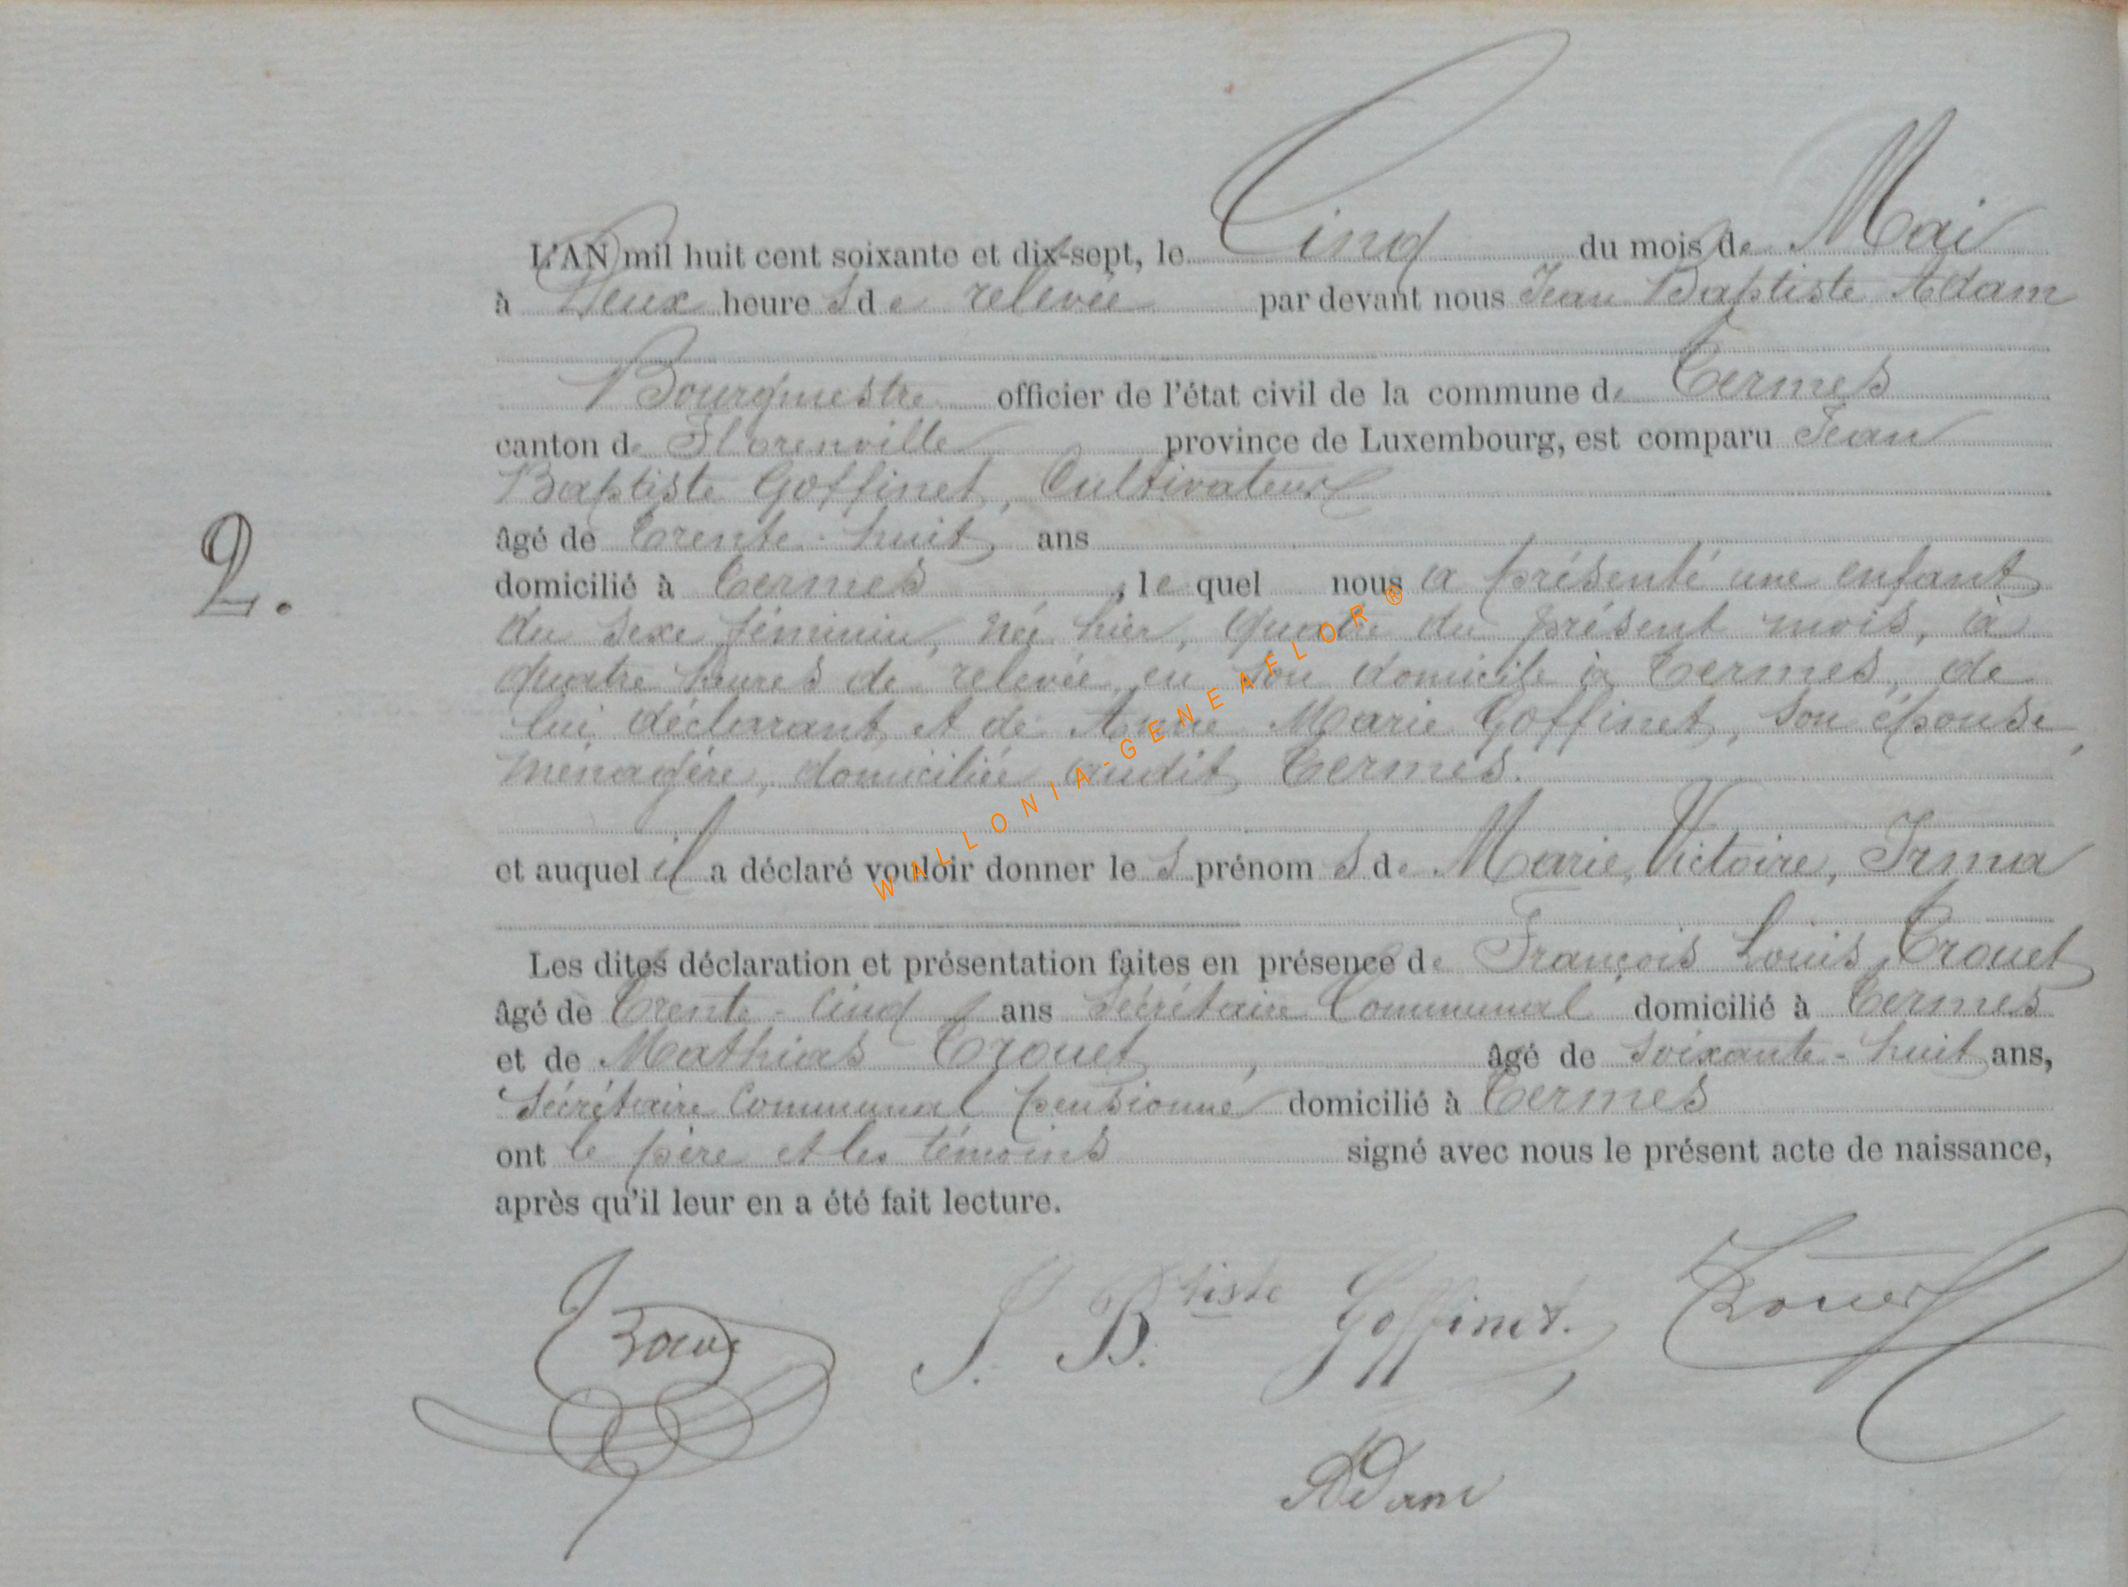 L'AN mil huit cent soixante et dix-sept, le Cinq du mois de Mai
à Deux heures de relevée par devant nous Jean Baptiste Adam
Bourgmestre officier de l'état civil de la commune de Termes
canton de Florenville province de Luxembourg, est comparu Jean
Baptiste Goffinet, Cultivateur
âgé de trente-huit ans
domicilié à Termes, lequel nous a présenté une enfant
du sexe féminin, née hier, quatre du présent mois, à
quatre heures de relevée, en son domicile à Termes, de
lui déclarant et de Anne Marie Goffinet, son épouse,
ménagère, domiciliée audit Termes.
2.
et auquel il a déclaré vouloir donner les prénoms de Marie, Victoire, Irma
Les dites déclaration et présentation faites en présence de François Louis Trouet
âgé de trente-cinq ans Sécrétaire Communal domicilié à Termes
et de Mathias Trouet, âgé de soixante-huit ans,
Sécrétaire Communal pensionné domicilié à Termes
ont le père et les témoins signé avec nous le présent acte de naissance,
après qu'il leur en a été fait lecture.
J. B.tiste Goffinet. Trouet
Adam
WALLONIA-GENEAFLOR ®